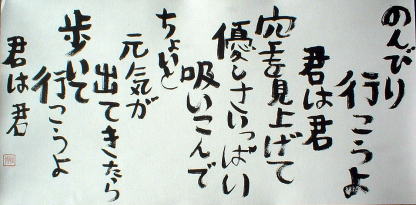 のんびり
行こうよ
君は君
空を見上げて
優しさいっぱい
吸いこんで
ちょいと
元気が
出てきたら
歩いて
行こうよ
君は君